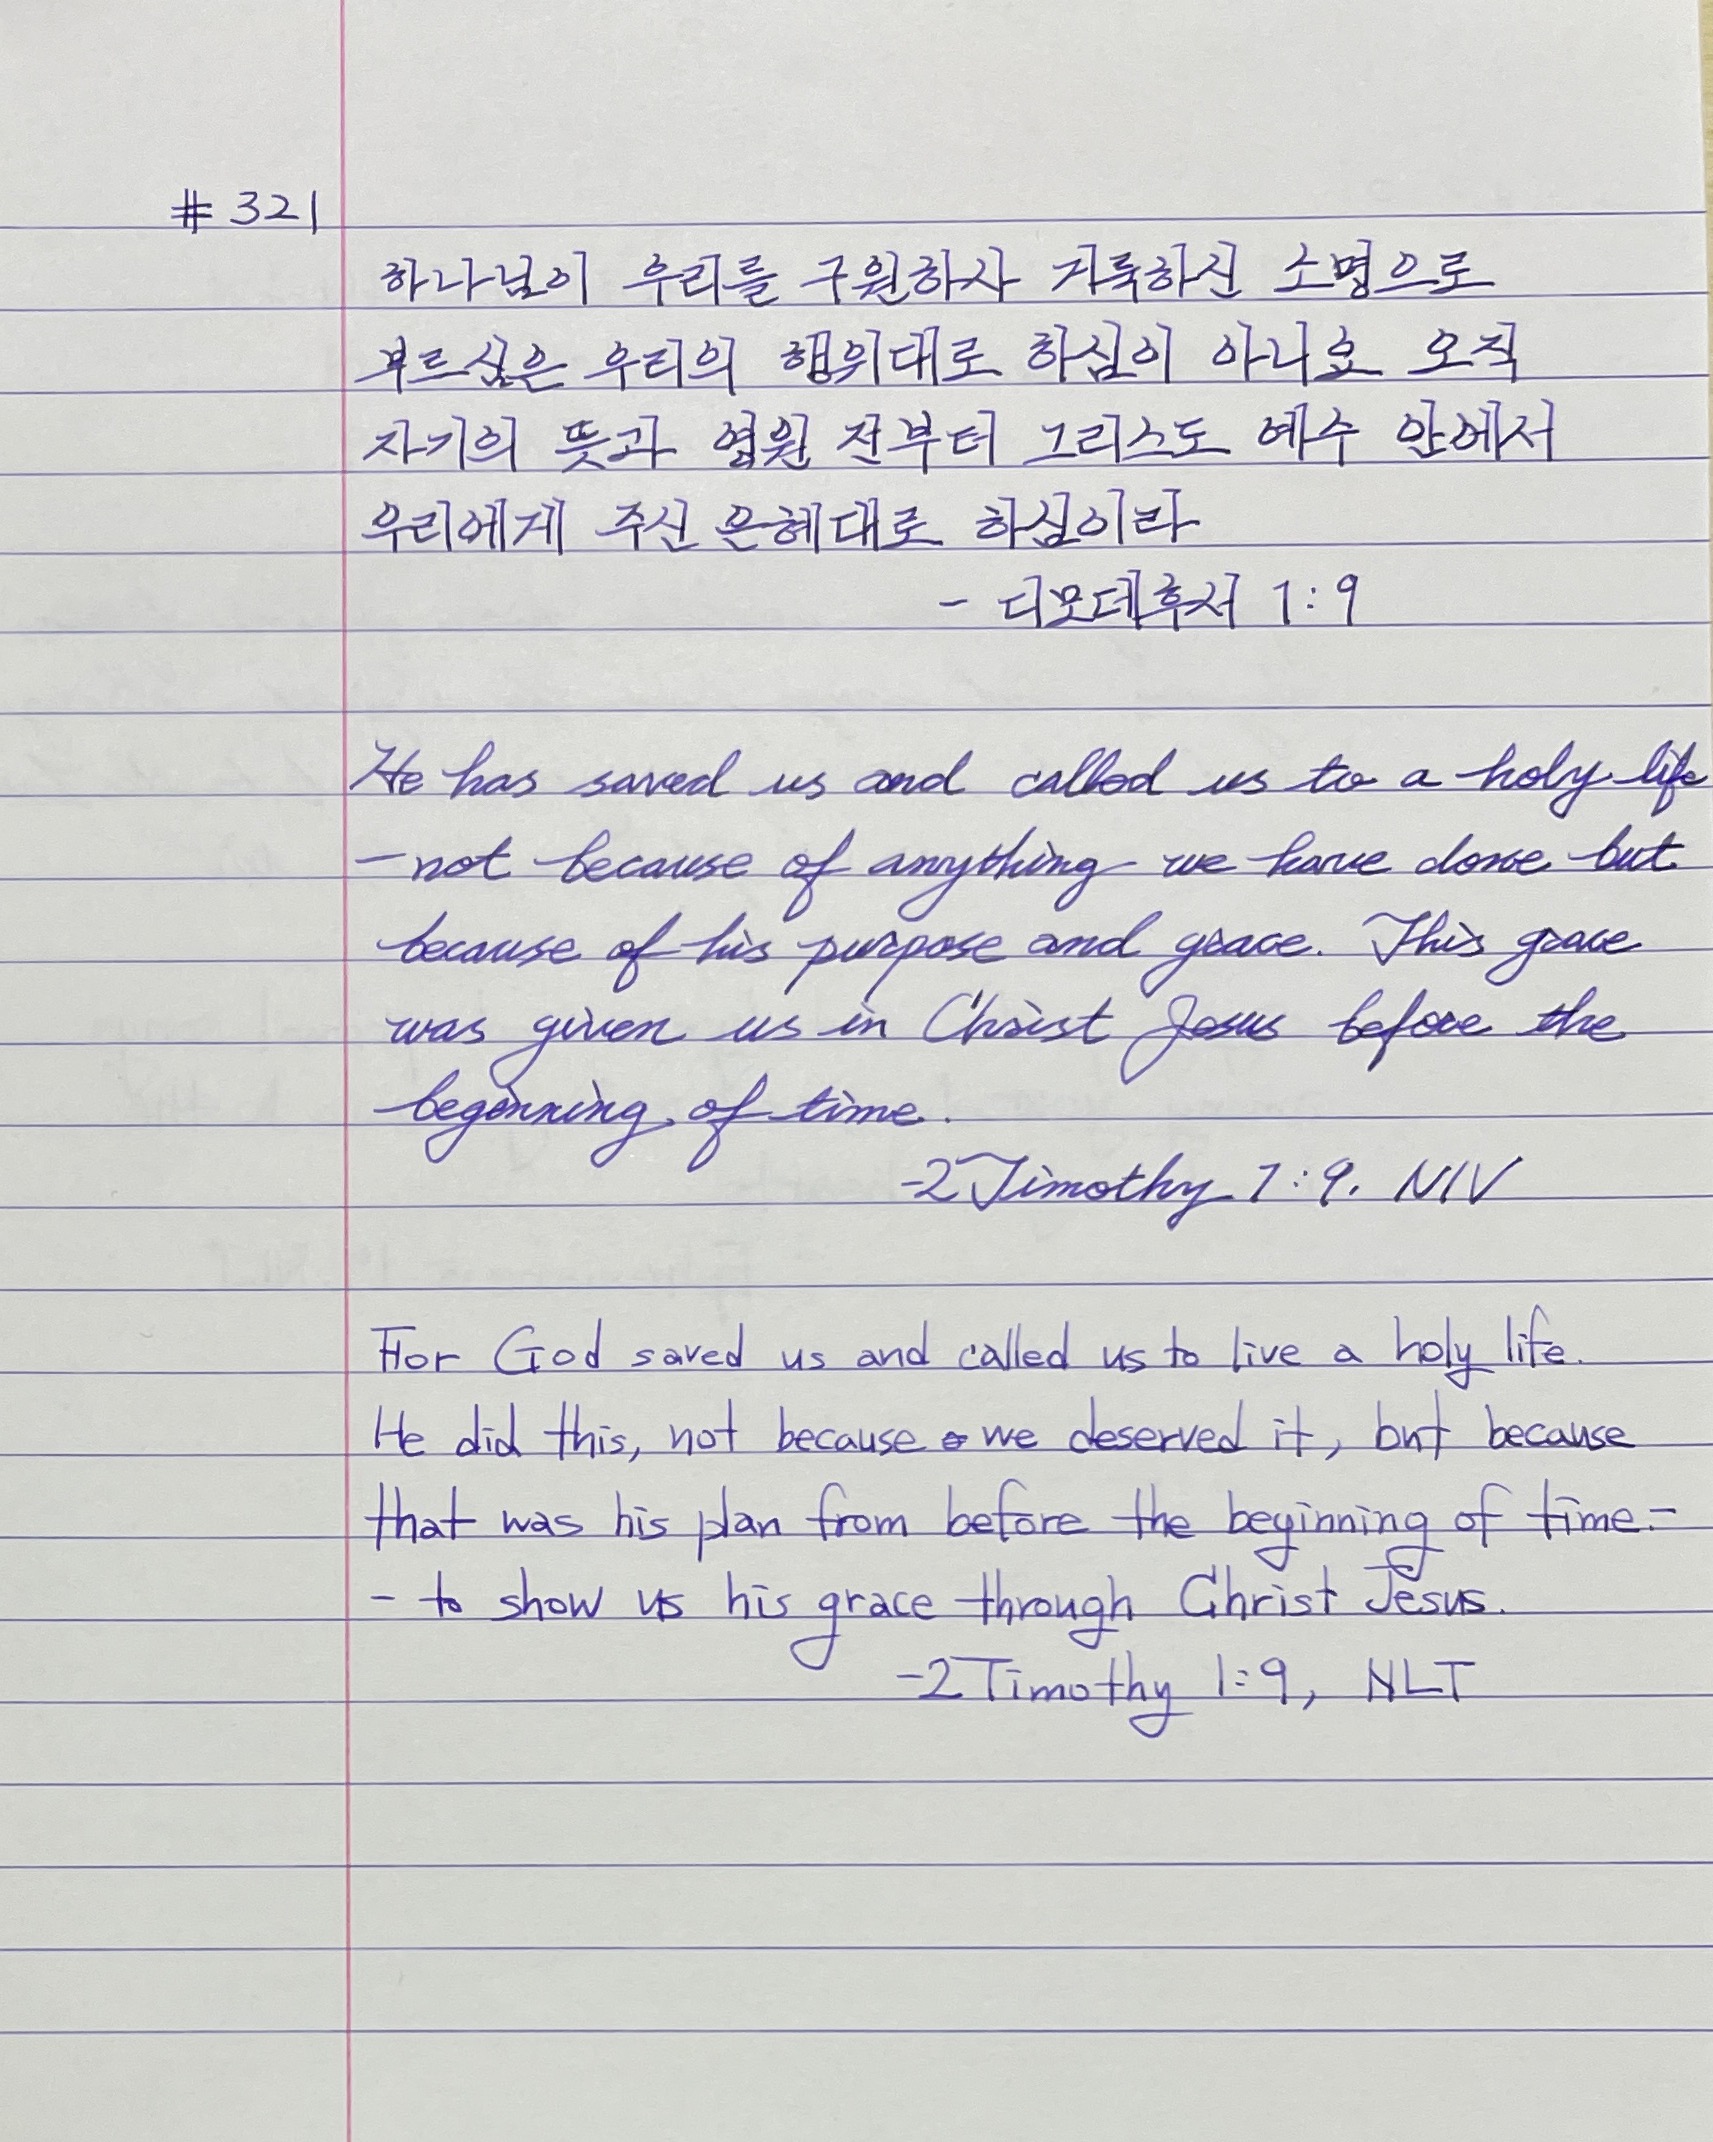 # 321
하나님이 우리를 구원하사 거룩하신 소명으로
부르심은 우리의 행위대로 하심이 아니요 오직
자기의 뜻과 영원 전부터 그리스도 예수 안에서
우리에게 주신 은혜대로 하심이라
- 디모데후서 1:9
He has saved us and called us to a holy life
-not because of anything we have done but
because of his purpose and grace. This grace
was given us in Christ Jesus before the
beginning of time.
-2 Timothy 1:9. NIV
For God saved us and called us to live a holy life.
He did this, not because we deserved it, but because
that was his plan from before the beginning of time-
- to show us his grace through Christ Jesus.
-2 Timothy 1:9, NLT